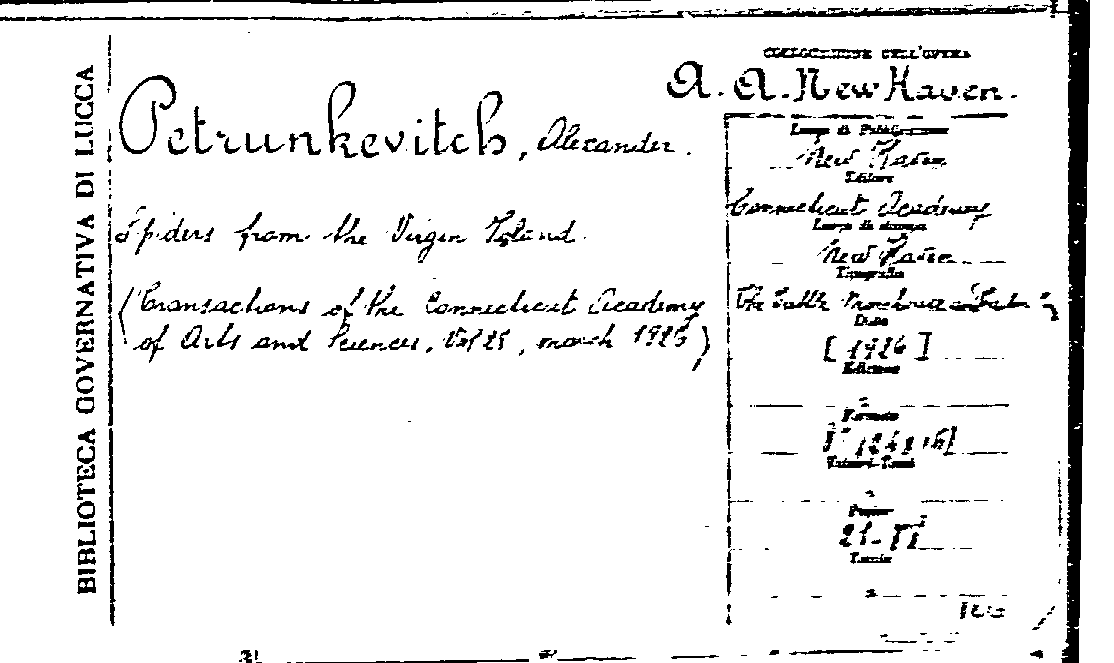 BIBLIOTECA GOVERNATIVA DI LUCCA
COLLOCAZIONE DELL'OPERA
A. A. New Haven.
Petrunkevitch, Alexander.
Spiders from the Virgin Island.
(Transactions of the Connecticut Academy
of Arts and Sciences, march 1926)
Luogo di Pubblicazione
New Haven
Editore
Connecticut Academy
Luogo di stampa
New Haven
Tipografia
The Tuttle
Data
[1926]
Edizione
Formato
Volumi-Tomi
Pagine
21-
Tavole